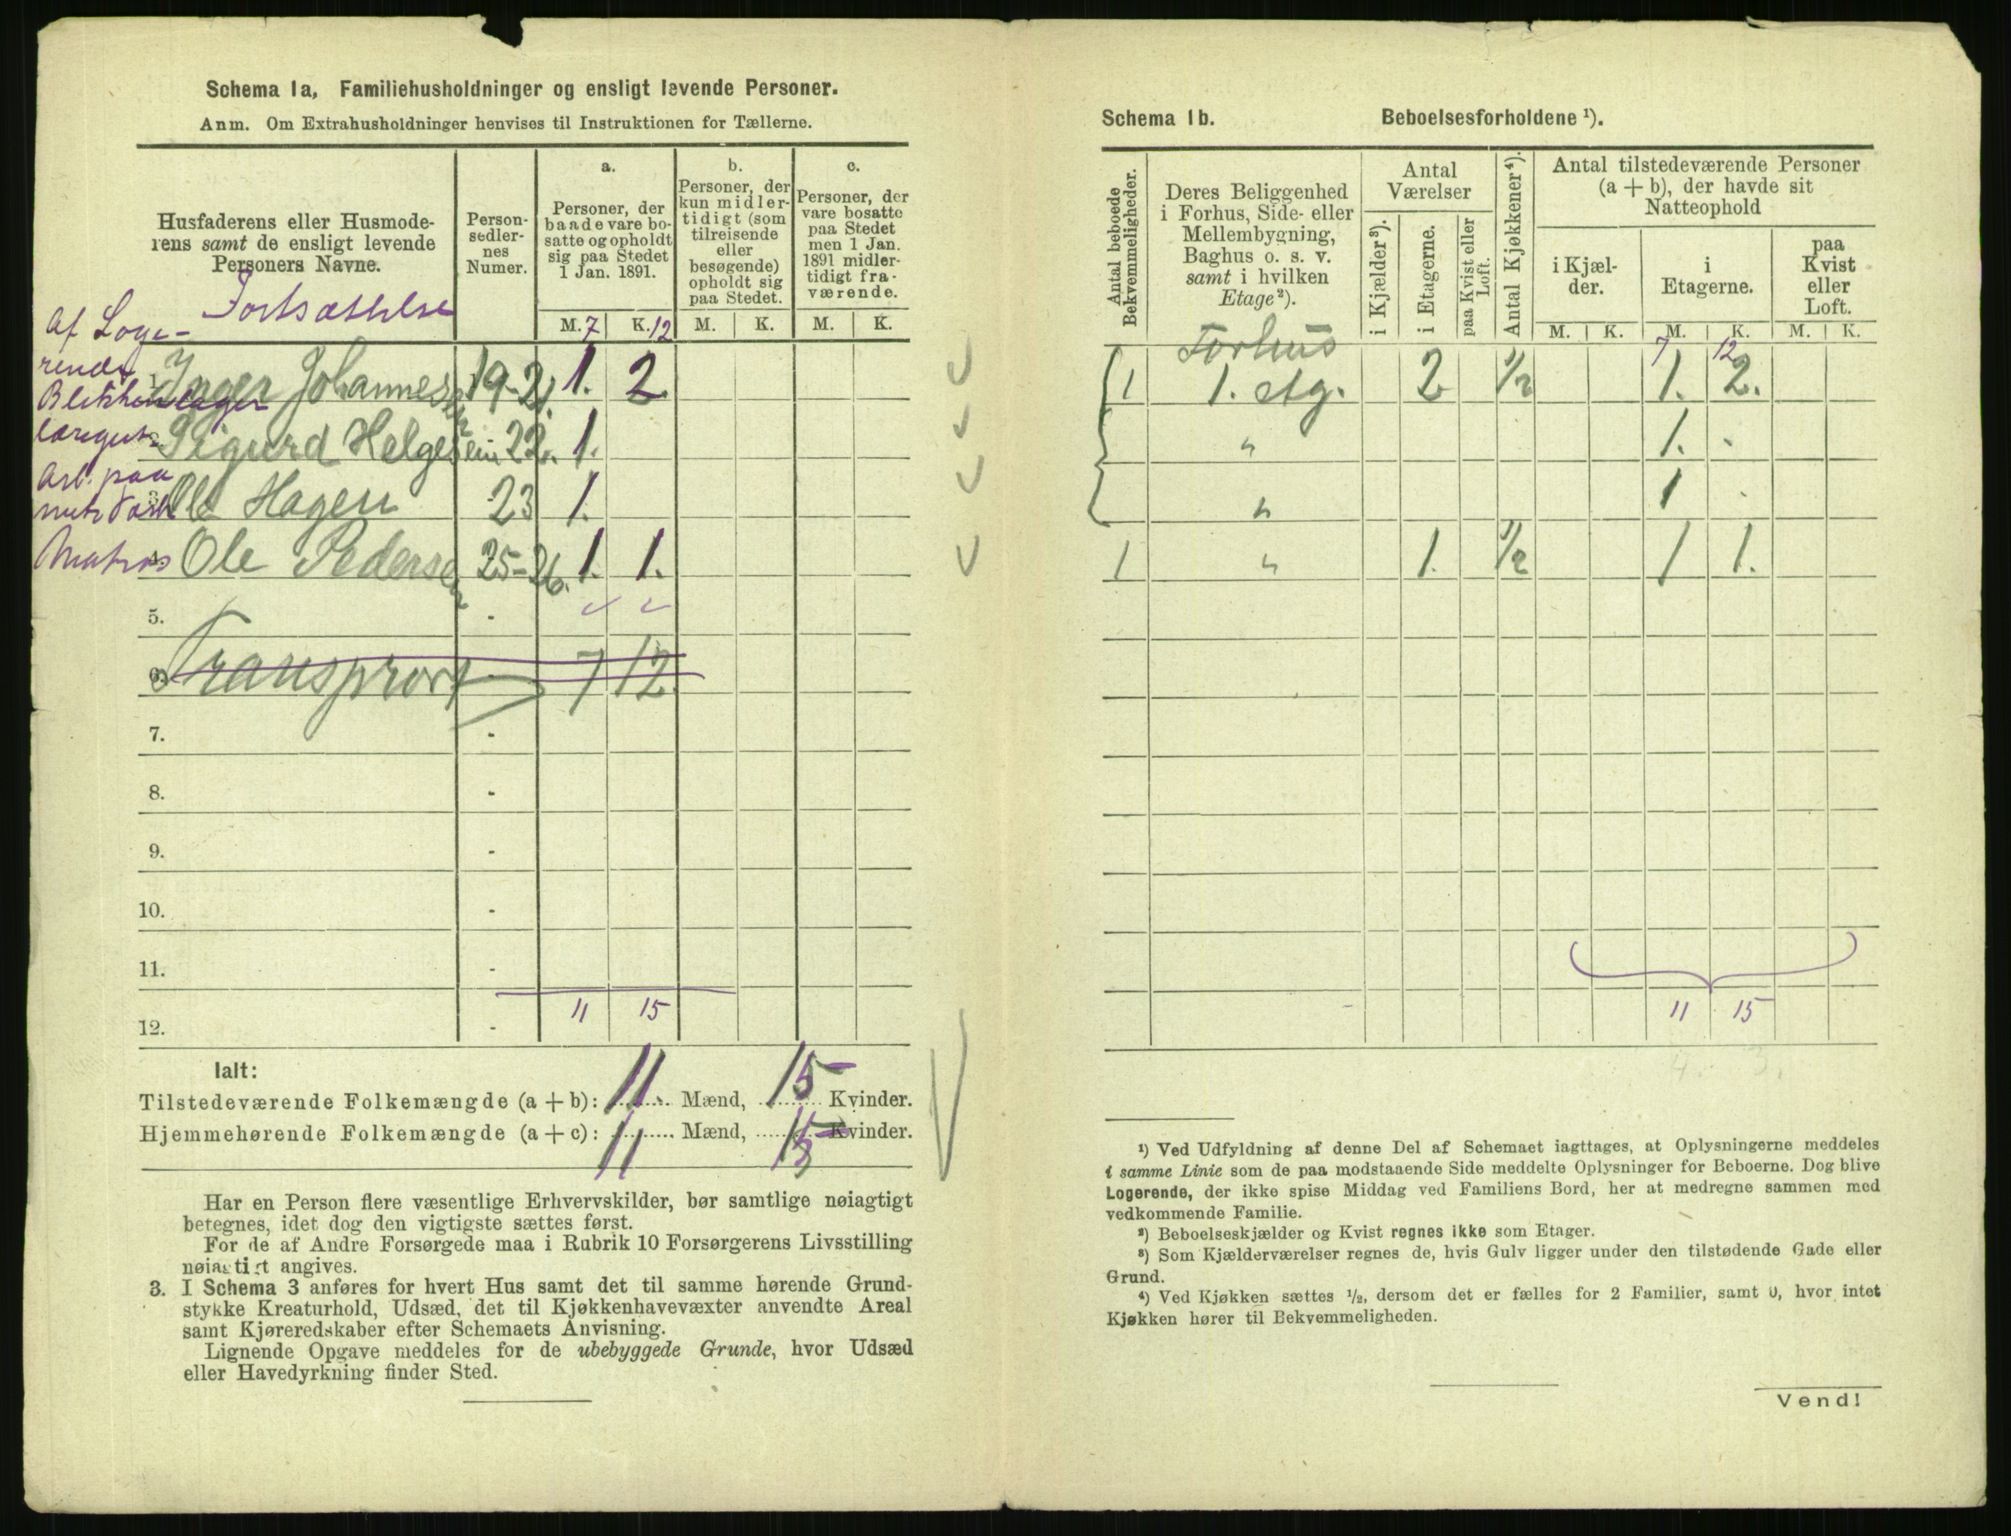 Schema 1a, Familiehusholdninger og ensligt levende Personer.
Anm. Om Extrahusholdninger henvises til Instruktionen for Tællerne.
Husfaderens eller Husmode-
rens samt de ensligt levende
Personers Navne.
Person-
sedler-
nes
Numer.
a.
Personer, der
baade vare bo-
satte og opholdt
sig paa Stedet
1 Jan. 1891.
b.
Personer, der
kun midler-
tidigt (som
tilreisende
eller
besøgende)
opholdt sig
paa Stedet.
c.
Personer, der
vare bosatte
paa Stedet
men 1 Jan.
1891 midler-
tidigt fra-
værende.
M. 7 K. 12 M. K. M. K.
Fortsættelse
Af Loge-
rende
1. Inger Johannesen 19-21. 1. 2
2. Sigurd Helgesen 22. 1.
Arb. paa
3. Ole Hagen 23 1.
Matros
4. Ole Pedersen 25-26. 1. 1.
5. -
6. Transport - 7 12
7. -
8. -
9. -
10. -
11. -
11 15
12. -
Ialt:
Tilstedeværende Folkemængde (a + b): 11. Mænd, 15 Kvinder.
Hjemmehørende Folkemængde (a + c): 11 Mænd, 15 Kvinder.
Har en Person flere væsentlige Erhvervskilder, bør samtlige nøiagtigt
betegnes, idet dog den vigtigste sættes først.
For de af Andre Forsørgede maa i Rubrik 10 Forsørgerens Livsstilling
nøiagtigt angives.
3. I Schema 3 anføres for hvert Hus samt det til samme hørende Grund-
stykke Kreaturhold, Udsæd, det til Kjøkkenhavevæxter anvendte Areal
samt Kjøreredskaber efter Schemaets Anvisning.
Lignende Opgave meddeles for de ubebyggede Grunde, hvor Udsæd
eller Havedyrkning finder Sted.
Schema 1b. Beboelsesforholdene ¹).
Antal beboede
Bekvemmeligheder.
Deres Beliggenhed
i Forhus, Side- eller
Mellembygning,
Baghus o. s. v.
samt i hvilken
Etage²).
Antal
Værelser
i Kjælder³).
i Etagerne.
paa Kvist eller
Loft.
Antal Kjøkkener⁴).
Antal tilstedeværende Personer
(a + b), der havde sit
Natteophold
i Kjæl-
der.
i
Etagerne.
paa
Kvist
eller
Loft.
M. K. M. K. M. K.
7 12
Forhus
1 1. Etg. 2 ½ 1. 2.
" 1. .
" 1 .
1 " 1. ½ 1 1.
11 15
4. 3.
¹) Ved Udfyldning af denne Del af Schemaet iagttages, at Oplysningerne meddeles
i samme Linie som de paa modstaaende Side meddelte Oplysninger for Beboerne. Dog blive
Logerende, der ikke spise Middag ved Familiens Bord, her at medregne sammen med
vedkommende Familie.
²) Beboelseskjælder og Kvist regnes ikke som Etager.
³) Som Kjælderværelser regnes de, hvis Gulv ligger under den tilstødende Gade eller
Grund.
⁴) Ved Kjøkken sættes ½, dersom det er fælles for 2 Familier, samt 0, hvor intet
Kjøkken hører til Bekvemmeligheden.
Vend!